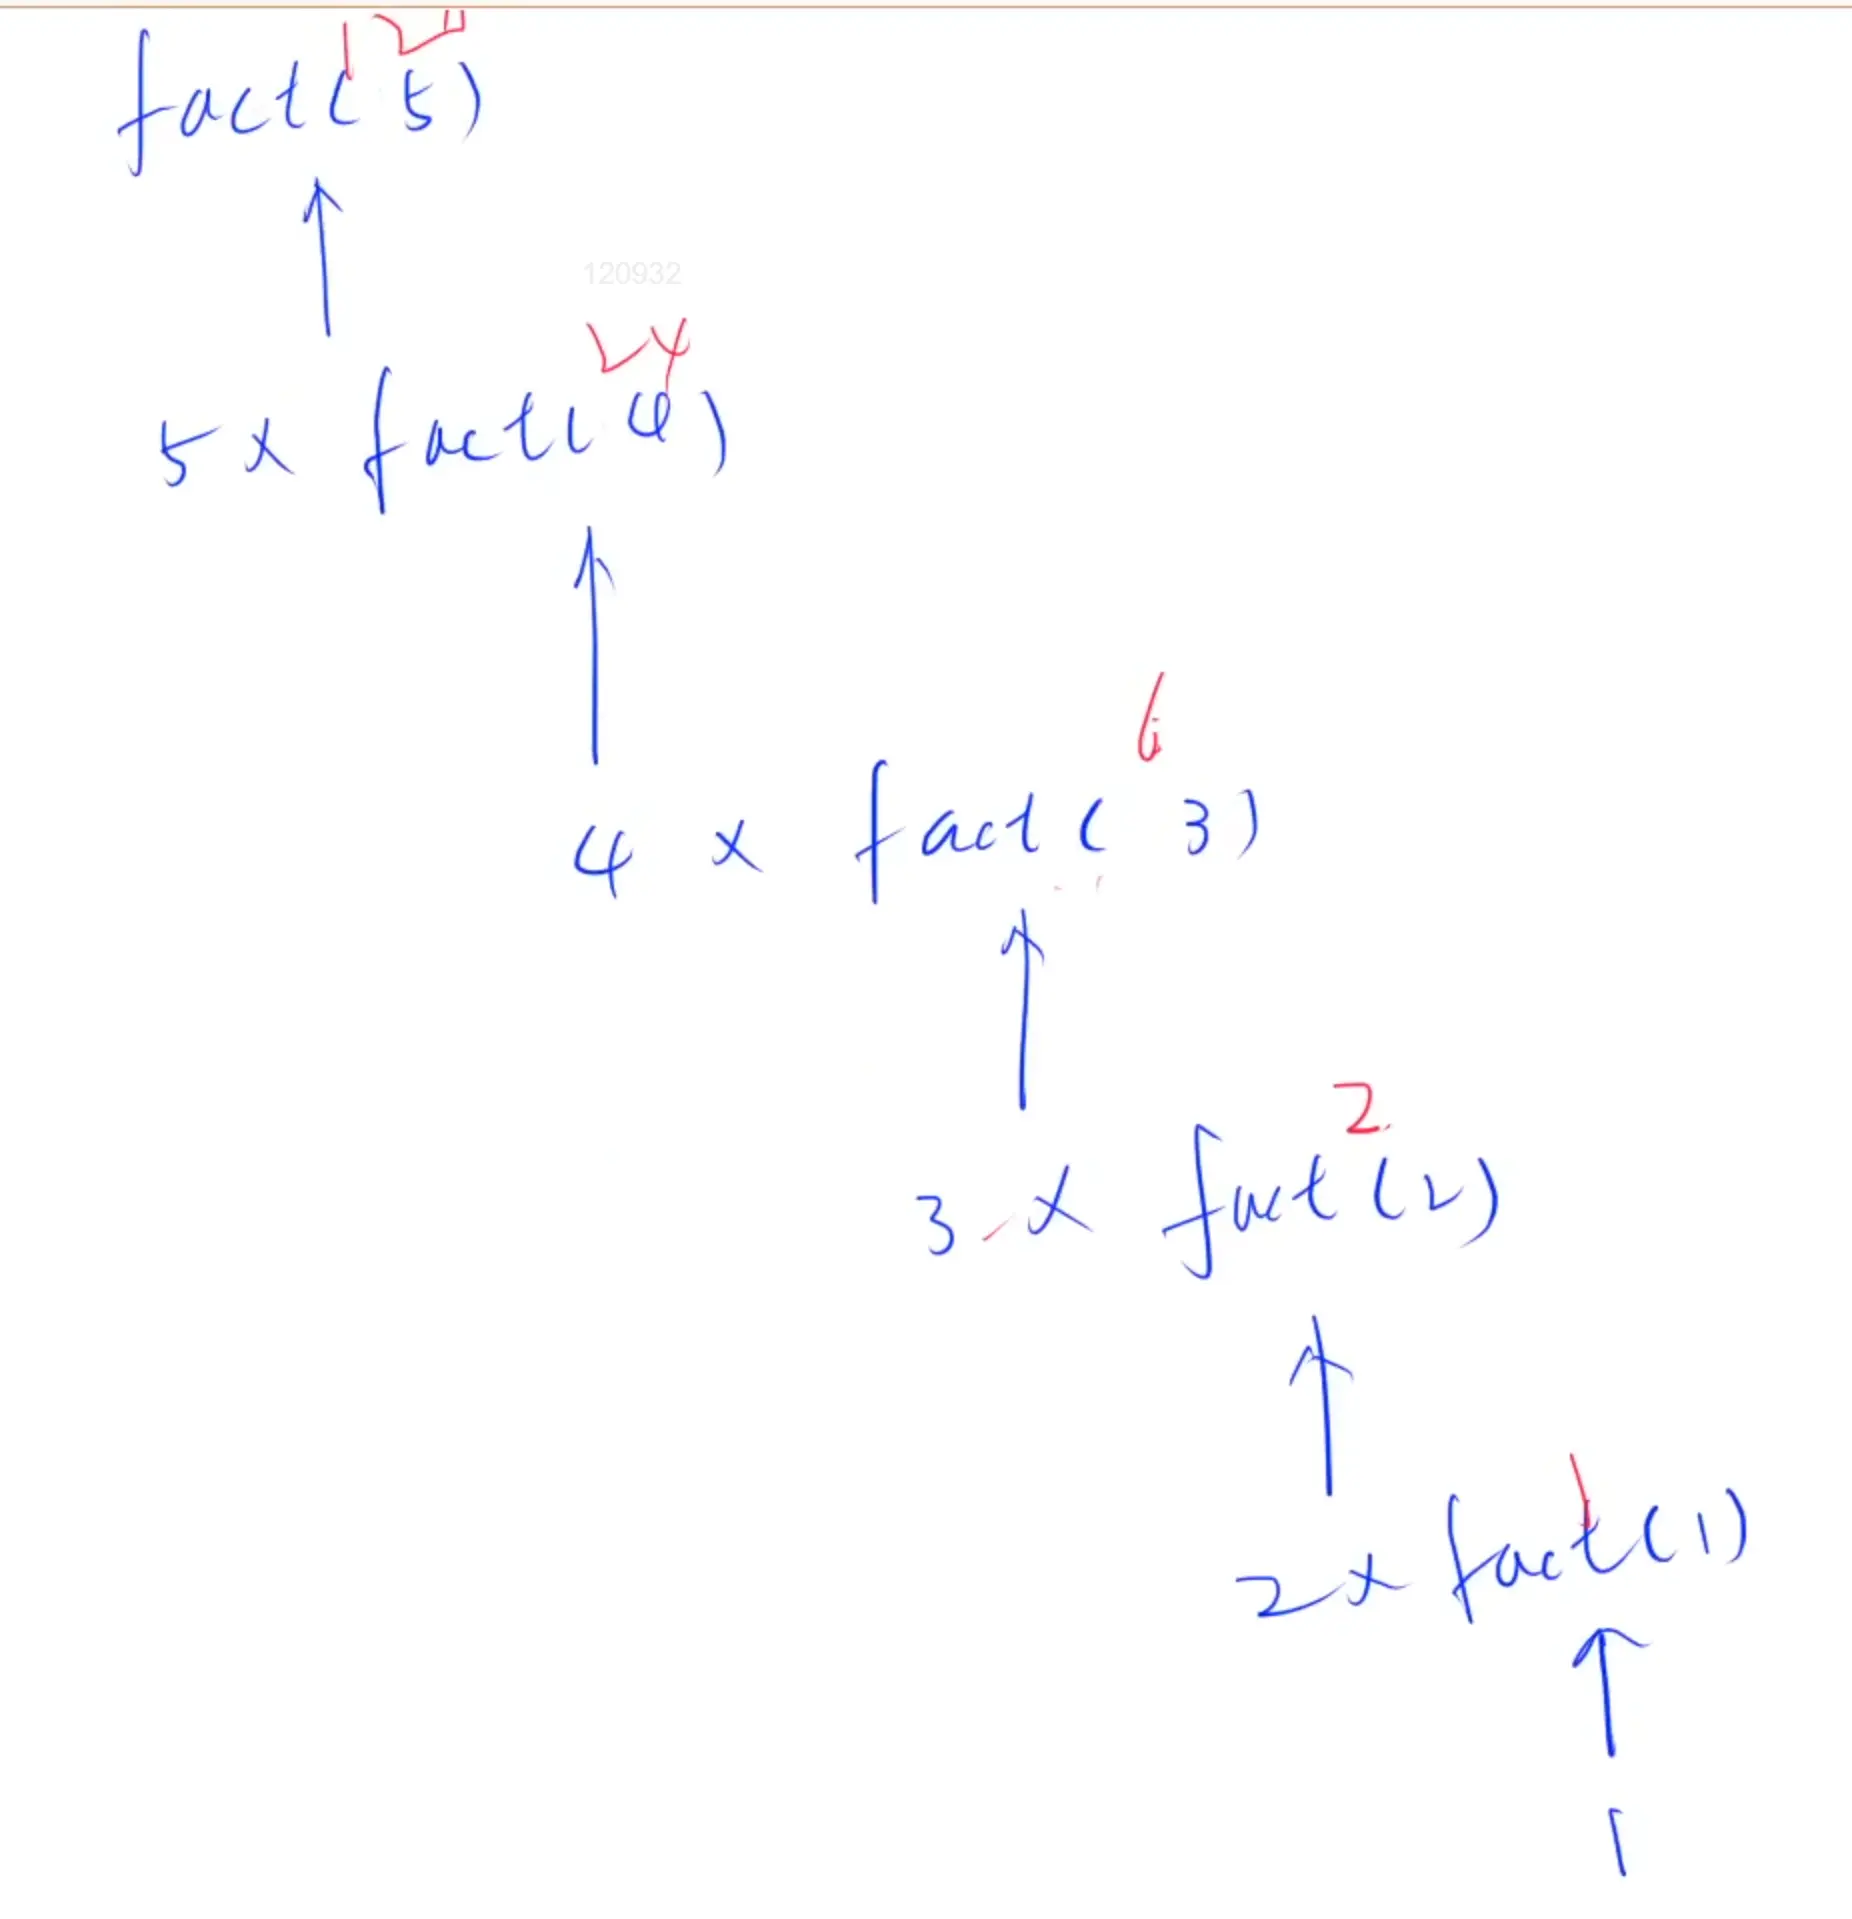 120
fact(5)
120932
24
5 x fact(4)
6
4 x fact(3)
2
3 x fact(2)
1
2 x fact(1)
1